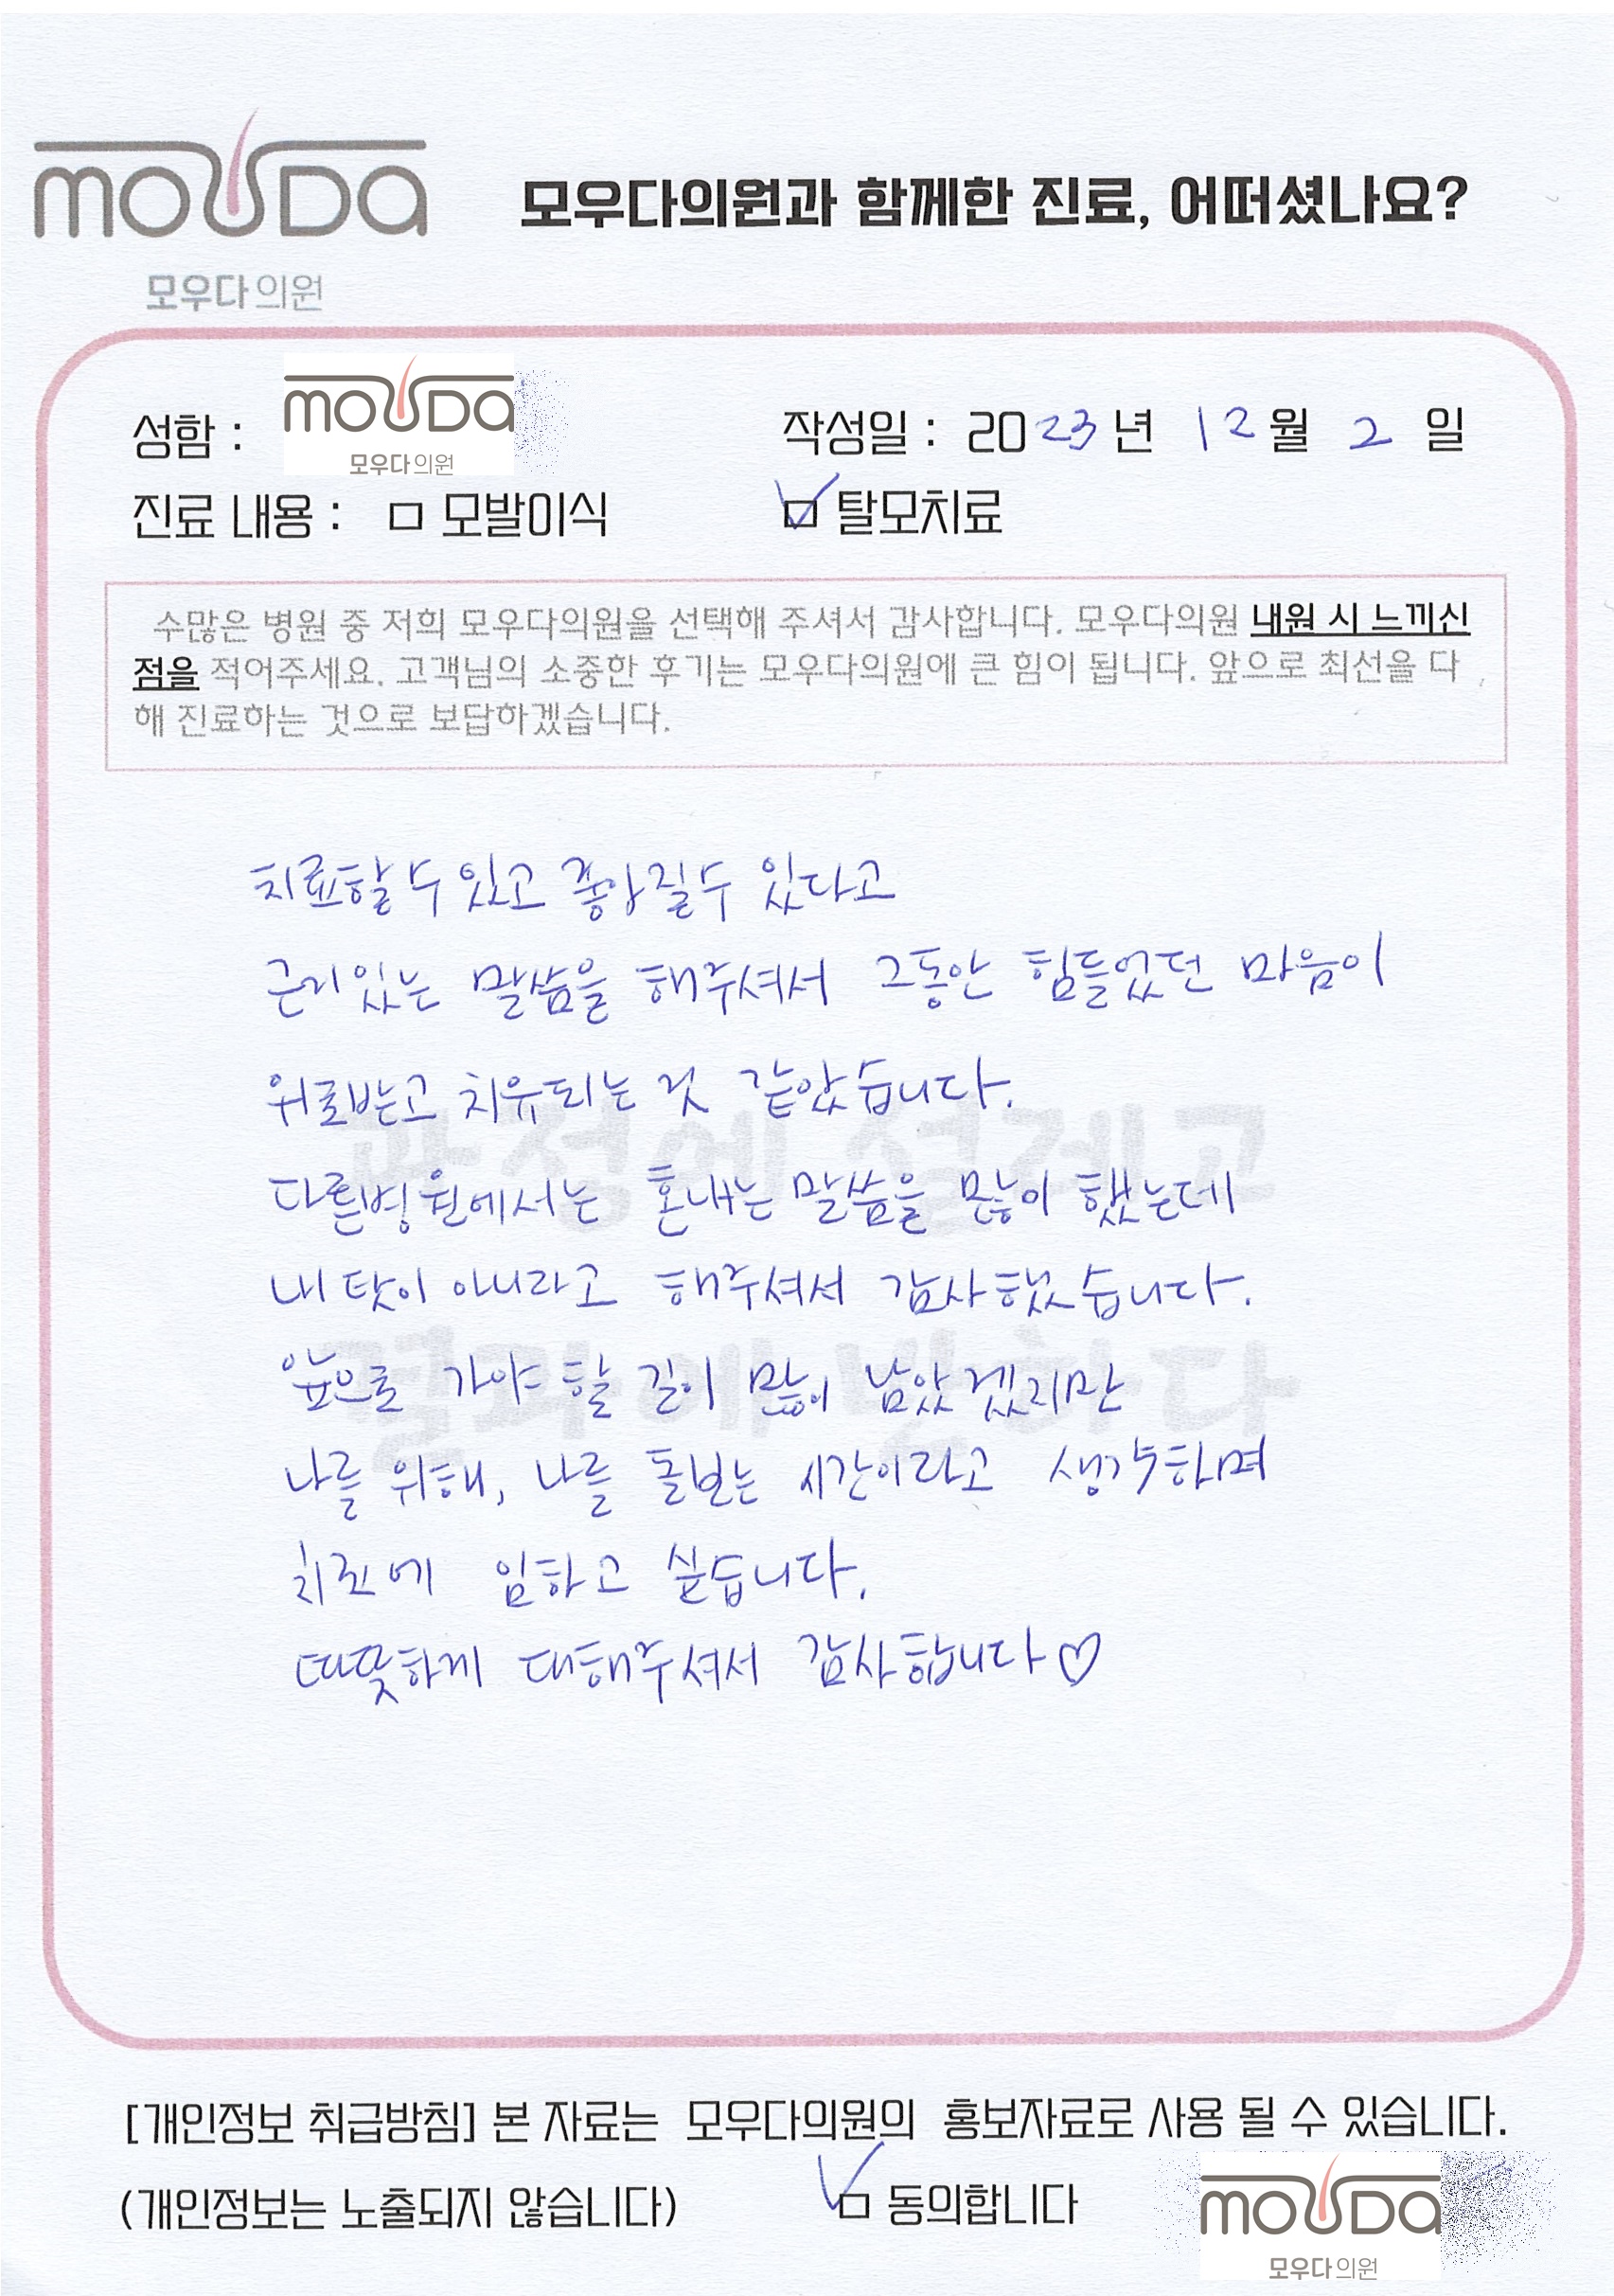 mouDa
모우다의원
모우다의원과 함께한 진료, 어떠셨나요?
성함 : mouDa 모우다의원
작성일 : 2023년 12월 2일
진료 내용 : □ 모발이식 ☑ 탈모치료
수많은 병원 중 저희 모우다의원을 선택해 주셔서 감사합니다. 모우다의원 내원 시 느끼신
점을 적어주세요. 고객님의 소중한 후기는 모우다의원에 큰 힘이 됩니다. 앞으로 최선을 다
해 진료하는 것으로 보답하겠습니다.
치료할 수 있고 좋아질 수 있다고
근거있는 말씀을 해주셔서 그동안 힘들었던 마음이
위로받고 치유되는 것 같았습니다.
다른병원에서는 혼내는 말씀을 많이 했는데
내 탓이 아니라고 해주셔서 감사했습니다.
앞으로 가야 할 길이 많이 남았겠지만
나를 위해, 나를 돌보는 시간이라고 생각하며
치료에 임하고 싶습니다.
따뜻하게 대해주셔서 감사합니다♡
과정에 설레고
결과에 반하다
[개인정보 취급방침] 본 자료는 모우다의원의 홍보자료로 사용 될 수 있습니다.
(개인정보는 노출되지 않습니다) ☑ 동의합니다
mouDa
모우다의원